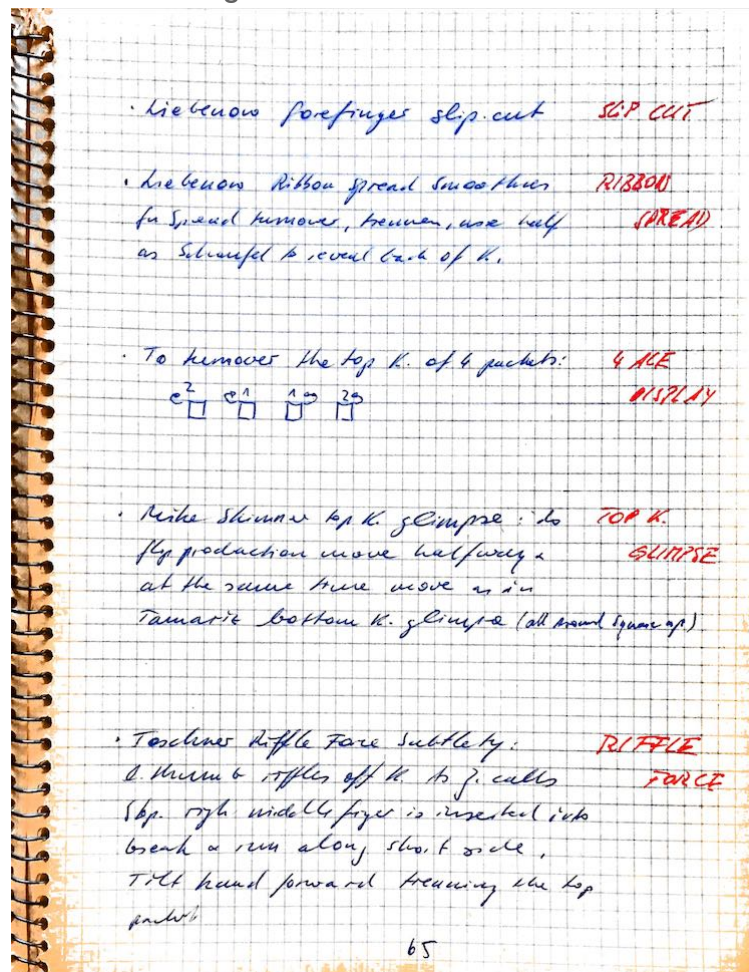 · Liebenow forefinger slip-cut SLIP CUT
· Liebenow Ribbon Spread Smoothies RIBBON
for Spread turnover, trennen, use half SPREAD
as Schaufel to reveal back of K.
· To turnover the top K. of 4 packets: 4 ACE
DISPLAY
2 1 1 2
· Mike Skinner top K. glimpse: do TOP K.
fly production move halfway & GLIMPSE
at the same time move as in
Tamariz bottom K. glimpse (all around square up)
· Toschner Riffle Force Subtlety: RIFFLE
l. thumb riffles off K. As Z. calls FORCE
Stop. right middle finger is inserted into
break & run along short side,
Tilt hand forward trennung the top
packet
65